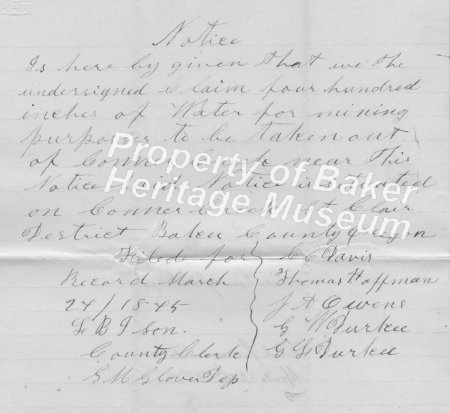 Notice
Is here by given that we the
undersigned Claim four hundred
inches of Water for mining
purposes to be taken out
of Conner Creek near this
Notice said Notice is situated
on Conner Creek St Clair
Destrict Baker County Oregon
Filed for
Record March
24/1845
County Clerk
G. M. Glover Dep
C C Davis
Thomas Hoffman
J A Owens
G W Durkee
G L Durkee
Property of Baker
Heritage Museum